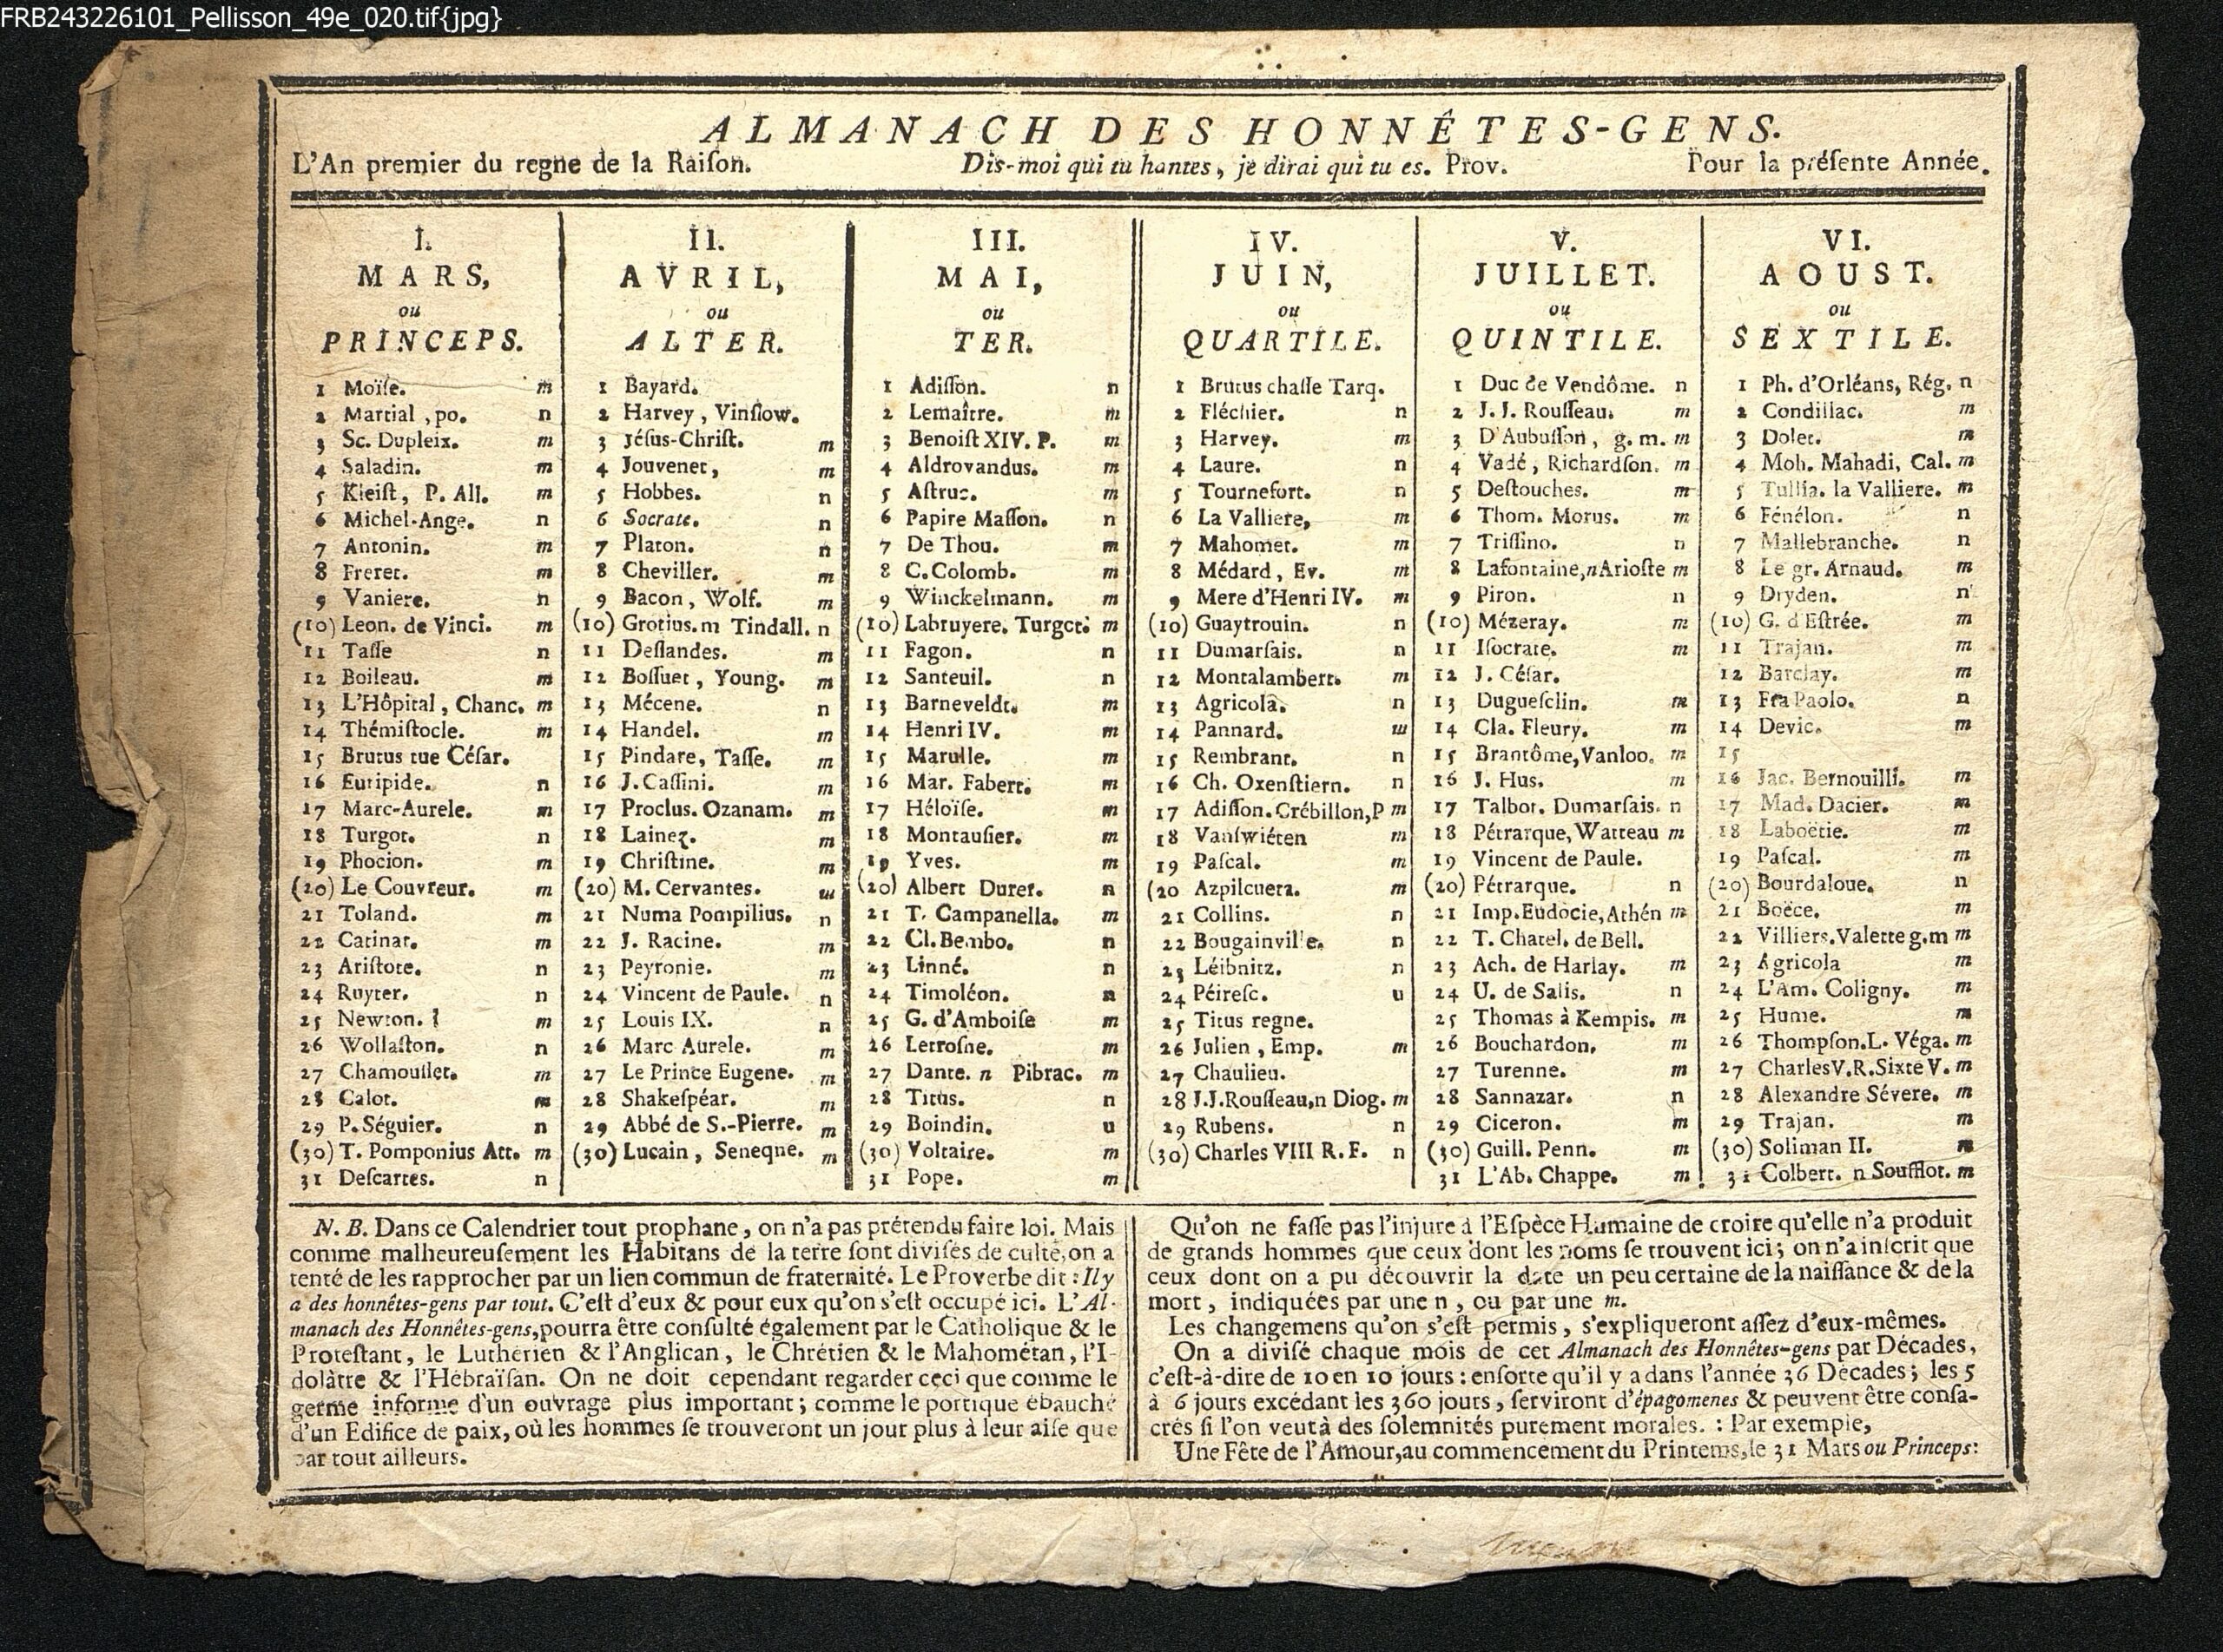 FRB243226101_Pellisson_49e_020.tif{jpg}
ALMANACH DES HONNÊTES-GENS.
L'An premier du regne de la Raiſon. Dis-moi qui tu hantes, je dirai qui tu es. Prov. Pour la préſente Année.
I.
MARS,
ou
PRINCEPS.
1 Moïſe. m
2 Martial, po. n
3 Sc. Dupleix. m
4 Saladin. m
5 Kleiſt, P. All. m
6 Michel-Ange. n
7 Antonin. m
8 Freret. m
9 Vaniere. n
(10) Leon. de Vinci. m
11 Taſſe n
12 Boileau. m
13 L'Hôpital, Chanc. m
14 Thémiſtocle. m
15 Brutus tue Céſar.
16 Euripide. n
17 Marc-Aurele. m
18 Turgot. n
19 Phocion. m
(20) Le Couvreur. m
21 Toland. m
22 Catinat. m
23 Ariſtote. n
24 Ruyter. n
25 Newton. m
26 Wollaſton. n
27 Chamouſſet. m
28 Calot. m
29 P. Séguier. n
(30) T. Pomponius Att. m
31 Deſcartes. n
II.
AVRIL,
ou
ALTER.
1 Bayard.
2 Harvey, Vinſlow.
3 Jéſus-Chriſt. m
4 Jouvenet, m
5 Hobbes. n
6 Socrate. n
7 Platon. n
8 Cheviller. m
9 Bacon, Wolf. m
(10) Grotius. m Tindall. n
11 Deſlandes. m
12 Boſſuet, Young. m
13 Mécene. n
14 Handel. m
15 Pindare, Taſſe. m
16 J. Caſſini. m
17 Proclus. Ozanam. m
18 Lainez. m
19 Chriſtine. m
(20) M. Cervantes. m
21 Numa Pompilius. n
22 J. Racine. m
23 Peyronie. m
24 Vincent de Paule. n
25 Louis IX. n
26 Marc Aurele. m
27 Le Prince Eugene. m
28 Shakeſpéar. m
29 Abbé de S.-Pierre. m
(30) Lucain, Seneqne. m
III.
MAI,
ou
TER.
1 Adiſſon. n
2 Lemaître. m
3 Benoiſt XIV. P. m
4 Aldrovandus. m
5 Aſtruc. m
6 Papire Maſſon. n
7 De Thou. m
8 C. Colomb. m
9 Winckelmann. m
(10) Labruyere. Turgot. m
11 Fagon. n
12 Santeuil. n
13 Barneveldt. m
14 Henri IV. m
15 Marulle. m
16 Mar. Fabert. m
17 Héloïſe. m
18 Montauſier. m
19 Yves. m
(20) Albert Durer. n
21 T. Campanella. m
22 Cl. Bembo. n
23 Linné. n
24 Timoléon. n
25 G. d'Amboiſe m
26 Letroſne. m
27 Dante. n Pibrac. m
28 Titus. n
29 Boindin. n
(30) Voltaire. m
31 Pope. m
IV.
JUIN,
ou
QUARTILE.
1 Brutus chaſſe Tarq.
2 Fléchier. n
3 Harvey. m
4 Laure. n
5 Tournefort. n
6 La Valliere, m
7 Mahomet. m
8 Médard, Ev. m
9 Mere d'Henri IV. m
(10) Guaytrouin. n
11 Dumarſais. n
12 Montalambert. m
13 Agricola. n
14 Pannard. m
15 Rembrant. n
16 Ch. Oxenſtiern. n
17 Adiſſon. Crébillon, P m
18 Vanſwiéten m
19 Paſcal. m
(20 Azpilcueta. m
21 Collins. n
22 Bougainville. n
23 Léibnitz. n
24 Péireſc. u
25 Titus regne.
26 Julien, Emp. m
27 Chaulieu.
28 J.J. Rouſſeau, n Diog. m
29 Rubens. n
(30) Charles VIII R. F. n
V.
JUILLET.
ou
QUINTILE.
1 Duc de Vendôme. n
2 J. J. Rouſſeau. m
3 D'Aubuſſon, g. m. m
4 Vadé, Richardſon. m
5 Deſtouches. m
6 Thom. Morus. m
7 Triſſino. n
8 Lafontaine, n Arioſte m
9 Piron. n
(10) Mézeray. m
11 Iſocrate. m
12 J. Céſar.
13 Dugueſclin. m
14 Cla. Fleury. m
15 Brantôme, Vanloo. m
16 J. Hus. m
17 Talbot. Dumarſais. n
18 Pétrarque, Watteau m
19 Vincent de Paule.
(20) Pétrarque. n
21 Imp. Eudocie, Athén m
22 T. Chatel. de Bell.
23 Ach. de Harlay. m
24 U. de Salis. n
25 Thomas à Kempis. m
26 Bouchardon. m
27 Turenne. m
28 Sannazar. n
29 Ciceron. m
(30) Guill. Penn. m
31 L'Ab. Chappe. m
VI.
AOUST.
ou
SEXTILE.
1 Ph. d'Orléans, Rég. n
2 Condillac. m
3 Dolet. m
4 Moh. Mahadi, Cal. m
5 Tullia. la Valliere. m
6 Fénélon. n
7 Mallebranche. n
8 Le gr. Arnaud. m
9 Dryden. n
(10) G. d'Eſtrée. m
11 Trajan. m
12 Barclay. m
13 Fra Paolo. n
14 Devic. m
15
16 Jac. Bernouilli. m
17 Mad. Dacier. m
18 Laboëtie. m
19 Paſcal. m
(20) Bourdaloue. n
21 Boëce. m
22 Villiers. Valette g.m m
23 Agricola m
24 L'Am. Coligny. m
25 Hume. m
26 Thompſon. L. Véga. m
27 Charles V. R. Sixte V. m
28 Alexandre Sévere. m
29 Trajan. m
(30) Soliman II. m
31 Colbert. n Soufflot. m
N. B. Dans ce Calendrier tout prophane, on n'a pas prétendu faire loi. Mais
comme malheureuſement les Habitans de la terre ſont diviſés de culte, on a
tenté de les rapprocher par un lien commun de fraternité. Le Proverbe dit : Il y
a des honnêtes-gens par tout. C'eſt d'eux & pour eux qu'on s'eſt occupé ici. L'Al-
manach des Honnêtes-gens, pourra être conſulté également par le Catholique & le
Proteſtant, le Luthérien & l'Anglican, le Chrétien & le Mahométan, l'I-
dolâtre & l'Hébraïſan. On ne doit cependant regarder ceci que comme le
germe informe d'un ouvrage plus important ; comme le portique ébauché
d'un Edifice de paix, où les hommes ſe trouveront un jour plus à leur aiſe que
par tout ailleurs.
Qu'on ne faſſe pas l'injure à l'Eſpèce Humaine de croire qu'elle n'a produit
de grands hommes que ceux dont les noms ſe trouvent ici ; on n'a inſcrit que
ceux dont on a pu découvrir la date un peu certaine de la naiſſance & de la
mort, indiquées par une n, ou par une m.
Les changemens qu'on s'eſt permis, s'expliqueront aſſez d'eux-mêmes.
On a diviſé chaque mois de cet Almanach des Honnêtes-gens par Décades,
c'eſt-à-dire de 10 en 10 jours : enſorte qu'il y a dans l'année 36 Décades ; les 5
à 6 jours excédant les 360 jours, ſerviront d'épagomenes & peuvent être conſa-
crés ſi l'on veut à des ſolemnités purement morales. : Par exemple,
Une Fête de l'Amour, au commencement du Printems, le 31 Mars ou Princeps :